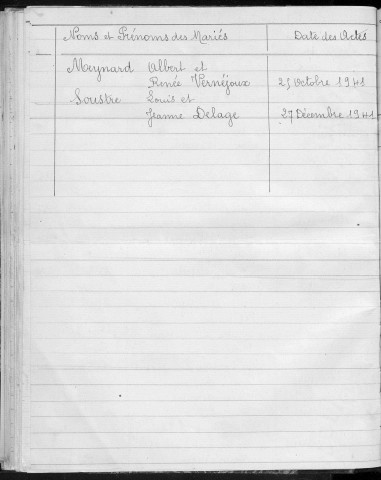 Noms et Prénoms des Mariés Date des Actes
Meynard Albert et
Renée Vernéjoux 25 Octobre 1941
Soustre Louis et
Jeanne Delage 27 Décembre 1941